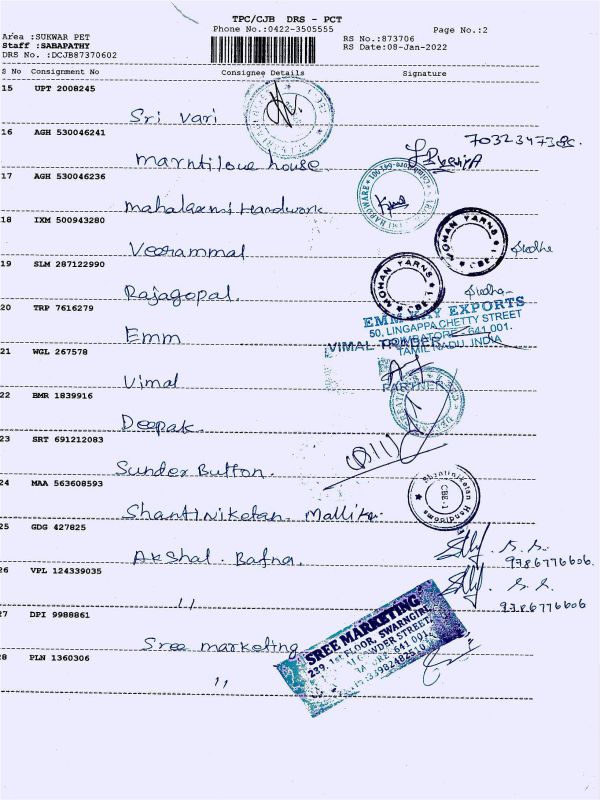 TPC/CJB DRS - PCT
Phone No.:0422-3505555
Page No.:2
Area :SUKWAR PET
RS No.:873706
Staff :SABAPATHY
RS Date:08-Jan-2022
DRS No. :DCJB87370602
S No Consignment No Consignee Details Signature
15 UPT 2008245
Sri Vari
16 AGH 530046241
7032347386.
house
17 AGH 530046236
Mahalaxmi Hardwork
18 IXM 500943280
MOHAN YARNS
Veerammal
19 SLM 287122990
MOHAN YARNS
Rajagopal.
20 TRP 7616279
EMM KAY EXPORTS
50, LINGAPPA CHETTY STREET
COIMBATORE - 641 001.
TAMIL NADU, INDIA
Emm
21 WGL 267578
VIMAL
PARTNER
Vimal
22 BMR 1839916
Deepak
23 SRT 691212083
Sunder Button.
24 MAA 563608593
Shantiniketan
CBE-1
Shantiniketan Mallika
25 GDG 427825
Akshal. Bafna.
9786776606.
26 VPL 124339035
9786776606
"
27 DPI 9988861
SREE MARKETING
239, 1st FLOOR,
STREET,
641 001.
Sree marketing
28 PLN 1360306
"